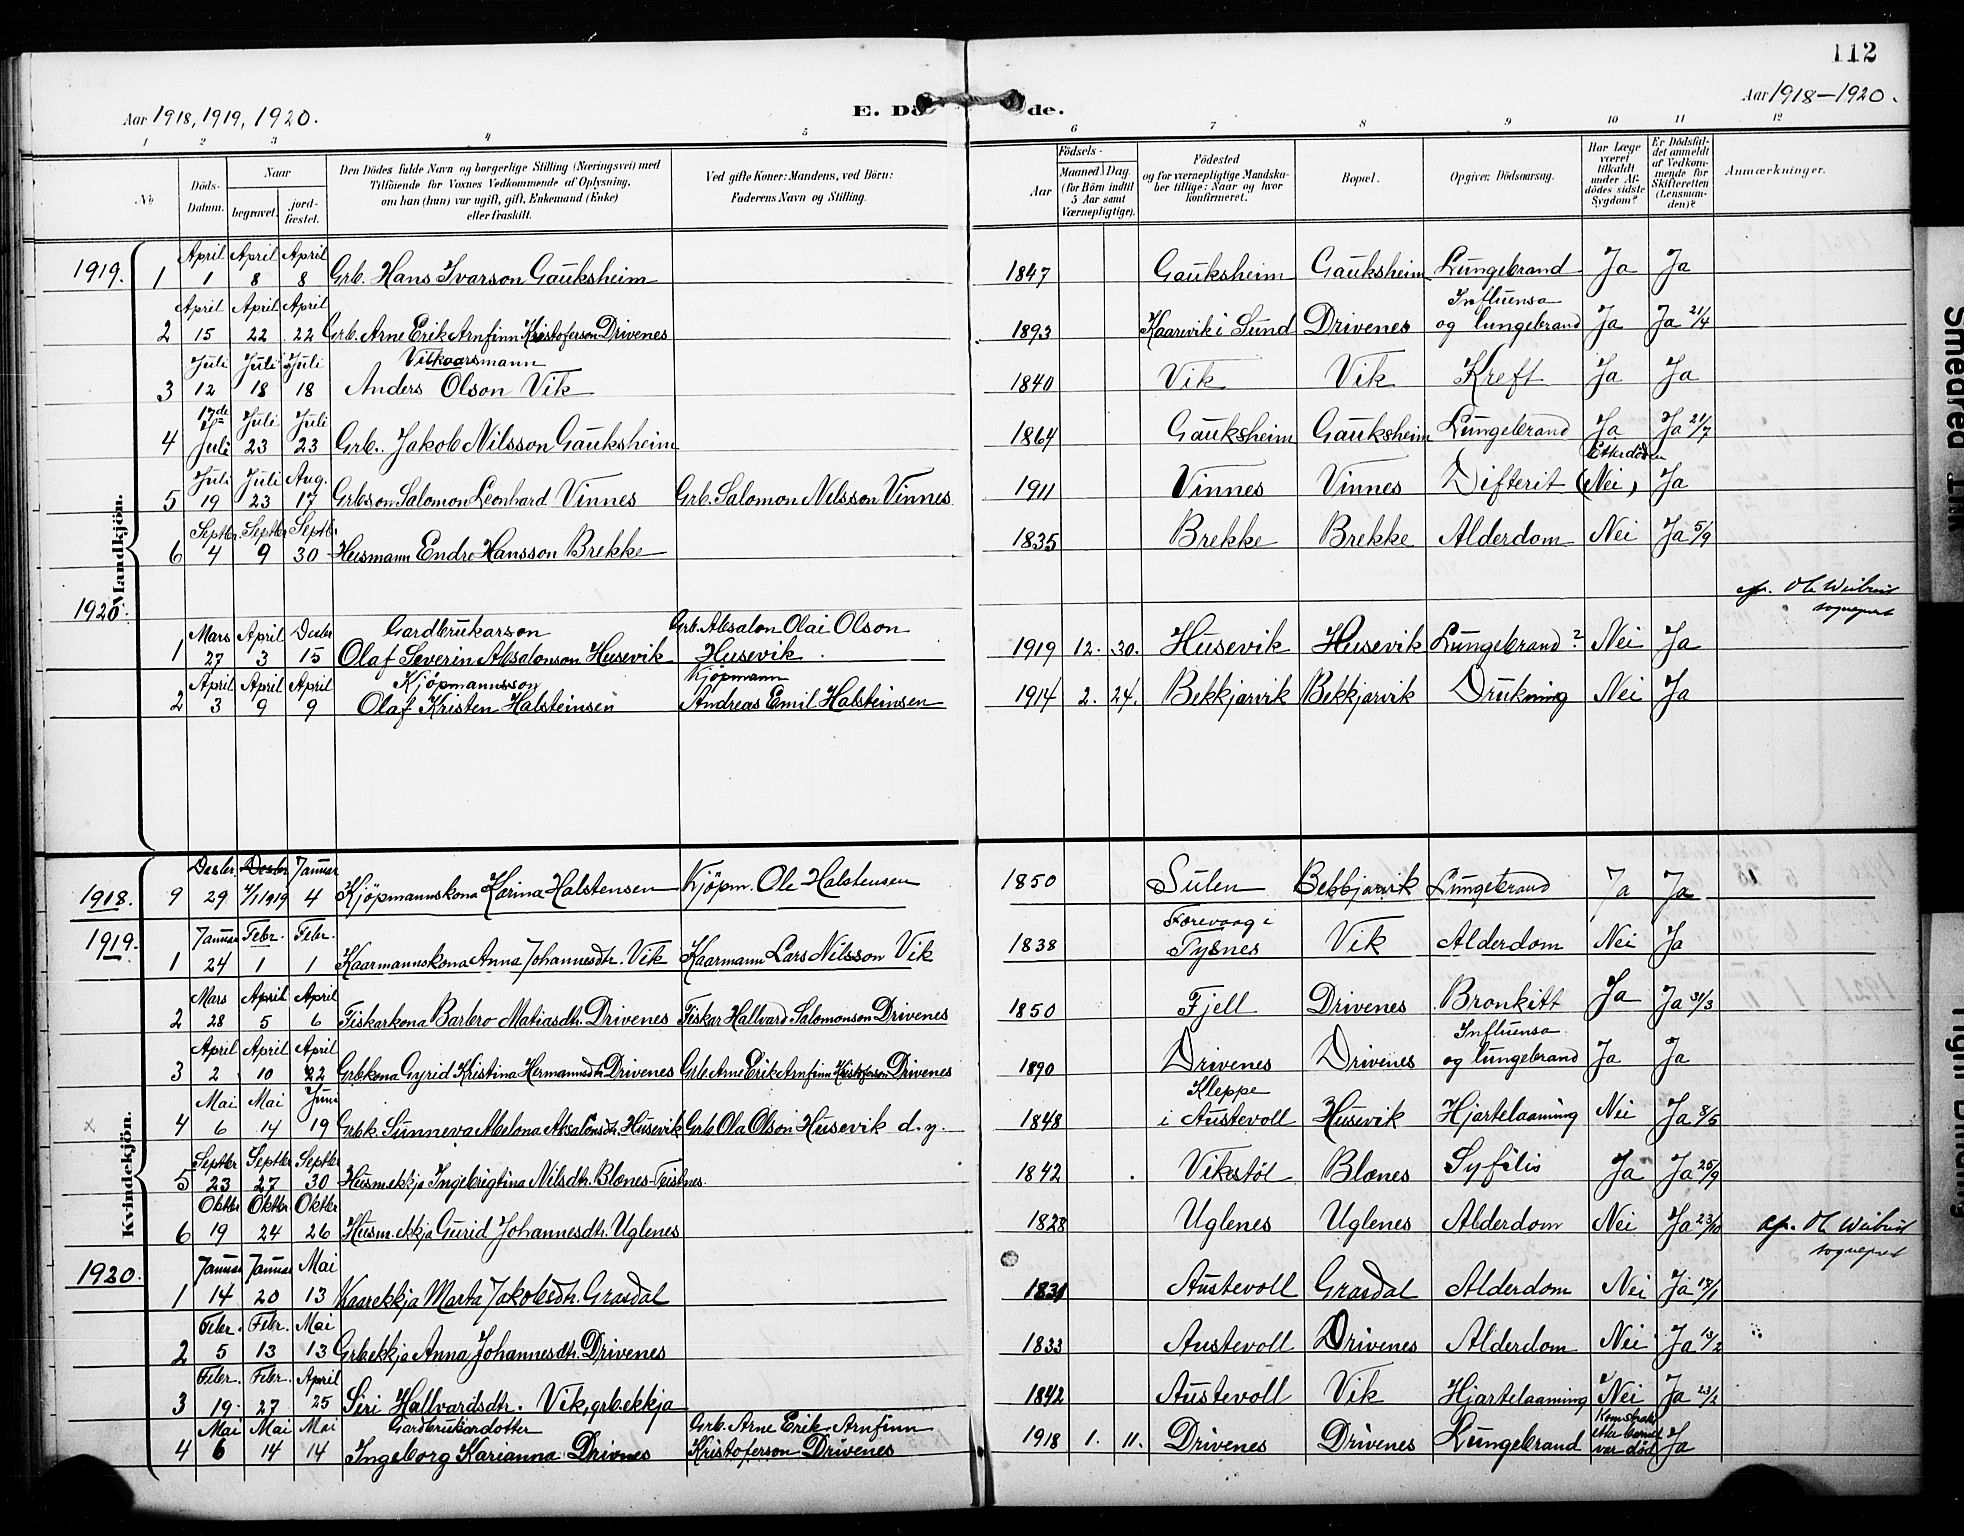 112
Aar 1918, 1919, 1920.
E. Dö de.
Aar 1918–1920.
1 2 3 4 5 6 7 8 9 10 11 12
No
Döds-Datum.
Naar begravet. jordfæstet.
Den Dödes fulde Navn og borgerlige Stilling (Næringsvei) med Tilföiende for Voxnes Vedkommende af Oplysning, om han (hun) var ugift, gift, Enkemand (Enke) eller fraskilt.
Ved gifte Koner: Mandens, ved Börn: Faderens Navn og Stilling.
Födsels- Aar Maaned Dag. (for Börn indtil 5 Aar samt Værnepligtige).
Födested og for værnepligtige Mandskaber tillige: Naar og hvor konfirmeret.
Bopæl.
Opgiven Dödsaarsag.
Har Læge været tilkaldt under Afdödes sidste Sygdom?
Er Dödsfaldet anmeldt af Vedkommende for Skifteretten (Lensmanden)?
Anmærkninger.
Mandkjön.
1919. 1 April 1 April 8 April 8 Grb. Hans Ivarson Gauksheim 1847 Gauksheim Gauksheim Lungebrand Ja Ja
2 April 15 April 22 April 22 Grb. Arne Erik Arnfinn Kristoferson Drivenes 1893 Kaarevik i Sund Drivenes Influensa og lungebrand Ja Ja 21/4
3 Juli 12 Juli 18 Juli 18 Vilkaarsmann Anders Olson Vik 1840 Vik Vik Kreft Ja Ja
4 17de Juli Juli 23 Juli 23 Grb. Jakob Nilsson Gauksheim 1864 Gauksheim Gauksheim Lungebrand Ja Ja 21/7
5 Juli 19 Juli 23 Aug. 17 Grbson Salomon Leonhard Vinnes Grb. Salomon Nilsson Vinnes 1911 Vinnes Vinnes Difterit Etter döden (Nei) Ja
6 Septbr. 4 Septbr. 9 Septbr. 30 Husmann Endre Hansson Brekke 1835 Brekke Brekke Alderdom Nei Ja 5/9
sogneprest
1920. 1 Mars 27 April 3 Desbr 15 Gardbrukarson Olaf Severin Absalonson Husevik Grb. Absalon Olai Olson Husevik. 1919 12. 30. Husevik Husevik Lungebrand? Nei Ja
2 April 3 April 9 April 9 Kjøpmannsson Olaf Kristen Halsteinsen Kjøpmann Andreas Emil Halsteinsen 1914 2. 24. Bekkjarvik Bekkjarvik Drukning Nei Ja
Kvindekjön.
1918. 9 Desbr 29 Desbr 4/1 1919 Januar 4 Kjöpmannskona Karina Halstensen Kjøpm. Ole Halstensen 1850 Sulen Bekkjarvik Lungebrand Ja Ja
1919. 1 Januar 24 Febr. 1 Febr. 1 Kaarmannskona Anna Johannesdtr. Vik Kaarmann Lars Nilsson Vik 1838 Forevaag i Tysnes Vik Alderdom Nei Ja
2 Mars 28 April 5 April 6 Fiskarkona Barbro Matiasdtr. Drivenes Fiskar Hallvard Salomonson Drivenes 1850 Fjell Drivenes Bronkitt Ja Ja 31/3
3 April 2 April 10 April 22 Grbkona Gyrid Kristina Hermannsdtr Drivenes Grb Arne Erik Arnfinn Kristoferson Drivenes 1890 Drivenes Drivenes Influensa og lungebrand Ja Ja
x 4 Mai 6 Mai 14 Juni 19 Grbk. Sunneva Abelona Absalonsdtr. Husevik Grb Ola Olson Husevik d.y. 1848 Kleppe i Austevoll Husevik Hjartelaaming Nei Ja 8/5
5 Septbr 23 Septbr 27 Septbr 30 Husm.ekkja Ingebrigtina Nilsdtr. Blænes 1842 Vikstøl Blænes Syfilis Ja Ja 25/9
6 Oktbr 19 Oktbr 24 Oktbr 26 Husm. ekkja Gurid Johannesdtr. Uglenes 1828 Uglenes Uglenes Alderdom Nei Ja 23/10
sogneprest
1920. 1 Januar 14 Januar 20 Mai 13 Kaarekkja Marta Jakobsdtr. Grasdal 1831 Austevoll Grasdal Alderdom Nei Ja 18/1
2 Febr. 5 Febr. 13 Mai 13 Grbekkja Anna Johannesdtr. Drivenes 1833 Austevoll Drivenes Alderdom Nei Ja 13/2
3 Febr. 19 Febr. 27 April 25 Siri Hallvardsdtr. Vik, grb.ekkja 1842 Austevoll Vik Hjartelaaming Nei Ja 23/2
4 Mai 6 Mai 14 Mai 14 Gardbrukardotter Ingeborg Karianna Drivnes Grb. Arne Erik Arnfinn Kristoferson Drivenes 1918 1. 11. Drivenes Drivenes Lungebrand etter barnet var död Ja
Smeared Ink
Tight Binding